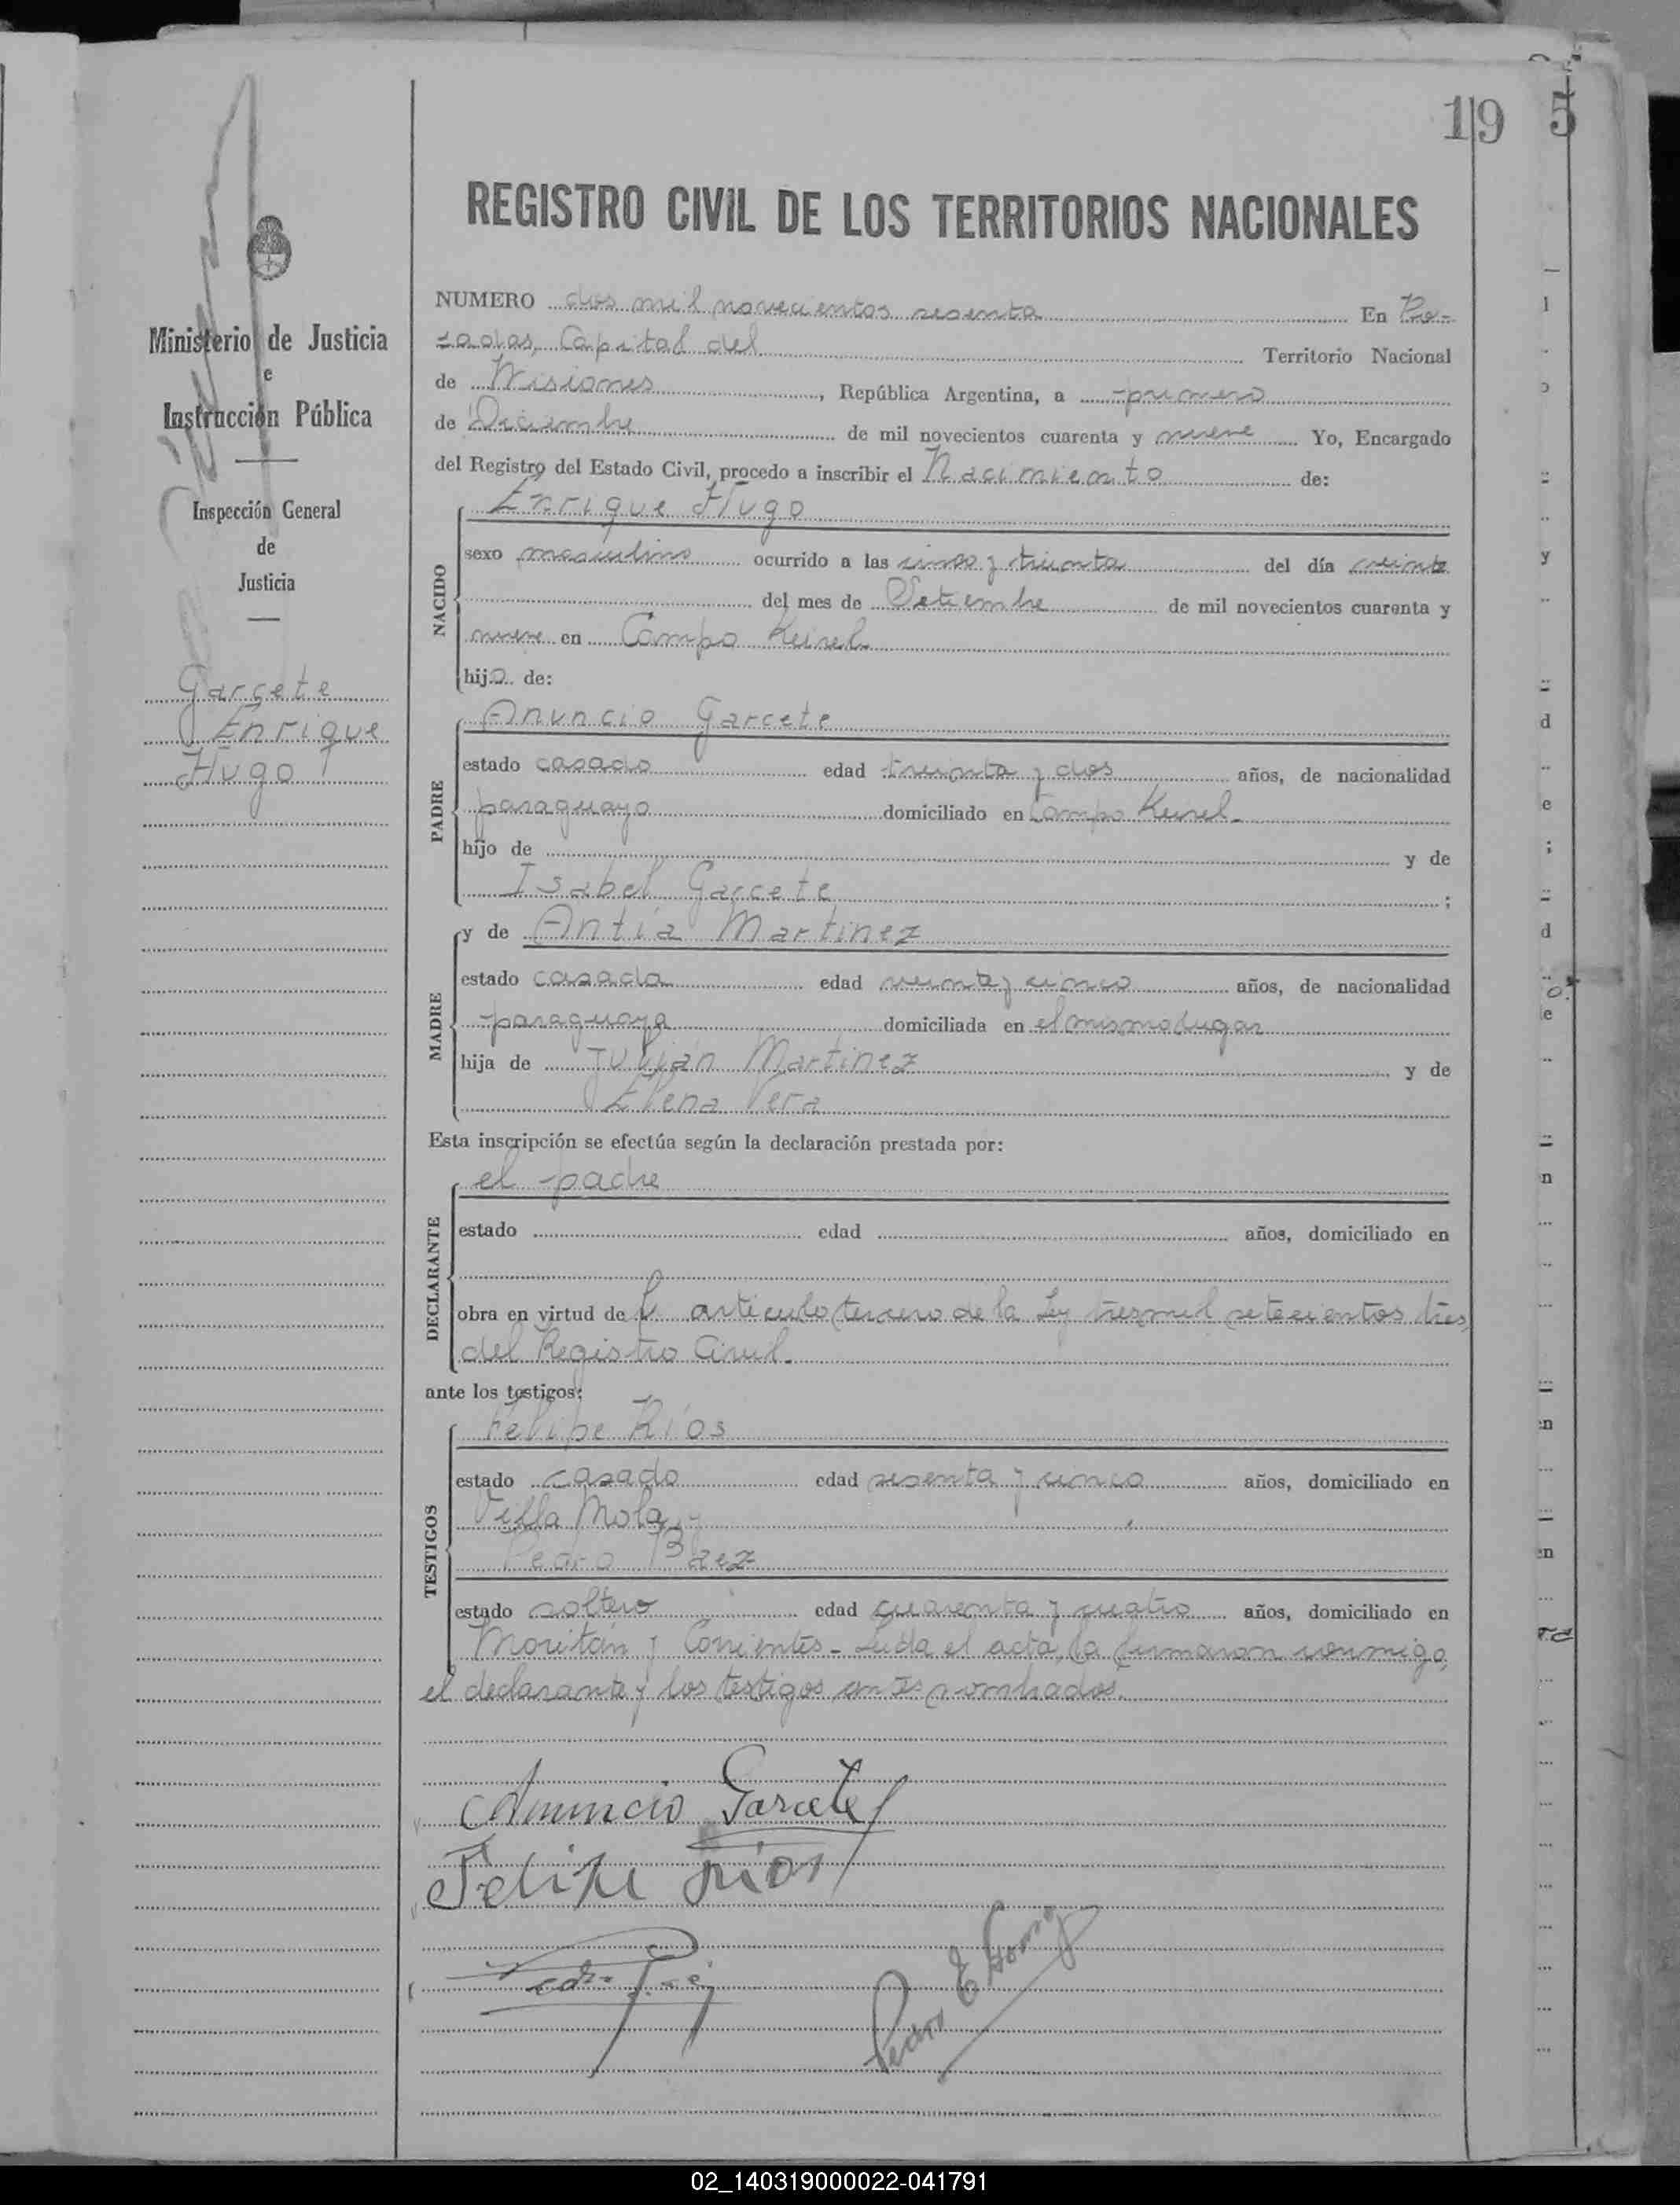 19 5
REGISTRO CIVIL DE LOS TERRITORIOS NACIONALES
Ministerio de Justicia
e
Instrucción Pública
Inspección General
de
Justicia
Garcete
Enrique
Hugo
NUMERO dos mil novecientos sesenta En Po-
sadas, Capital del Territorio Nacional
de Misiones, República Argentina, a primero
de Diciembre de mil novecientos cuarenta y nueve Yo, Encargado
del Registro del Estado Civil, procedo a inscribir el Nacimiento de:
NACIDO
Enrique Hugo
sexo masculino ocurrido a las cinco y treinta del día veinte
del mes de Setiembre de mil novecientos cuarenta y
nueve en Campo
hijo de:
PADRE
Anuncio Garcete
estado casado edad treinta y dos años, de nacionalidad
paraguayo domiciliado en Campo
hijo de y de
Isabel Garcete ;
MADRE
y de Antia Martinez
estado casada edad veinte y cinco años, de nacionalidad
paraguaya domiciliada en el mismo lugar
hija de Julian Martinez y de
Elena Vera
Esta inscripción se efectúa según la declaración prestada por:
DECLARANTE
el padre
estado edad años, domiciliado en
obra en virtud de l articulo tercero de la Ley tres mil setecientos tres,
del Registro Civil.
ante los testigos:
TESTIGOS
Felipe Ríos
estado casado edad sesenta y cinco años, domiciliado en
Villa Mola y
Pedro Baez
estado soltero edad cuarenta y cuatro años, domiciliado en
y Corrientes - Leída el acta, la firmaron conmigo,
el declarante y los testigos antes nombrados.
Anuncio Garcete
Felipe Rios
Pedro
Pedro E
02_140319000022-041791